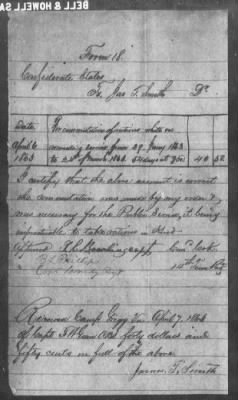 BELL & HOWELL SA
Form 18.
Confederate States
To, Jas T. Smith Dr.
Date
In commutation of rations while on
April 6
1863
recruiting service from 29. Jany 1863
to 24th of March 1863. 54 days at 75c
40 50
I certify that the above account is correct
the commutation was made by my order &
was necessary for the Public Service, it being
impracticable to take rations in kind
Approved
14th Tenn
Received Camp Gregg Va. April 7, 1863
of Capt forty dollars and
fifty cents in full of the above
James T. Smith